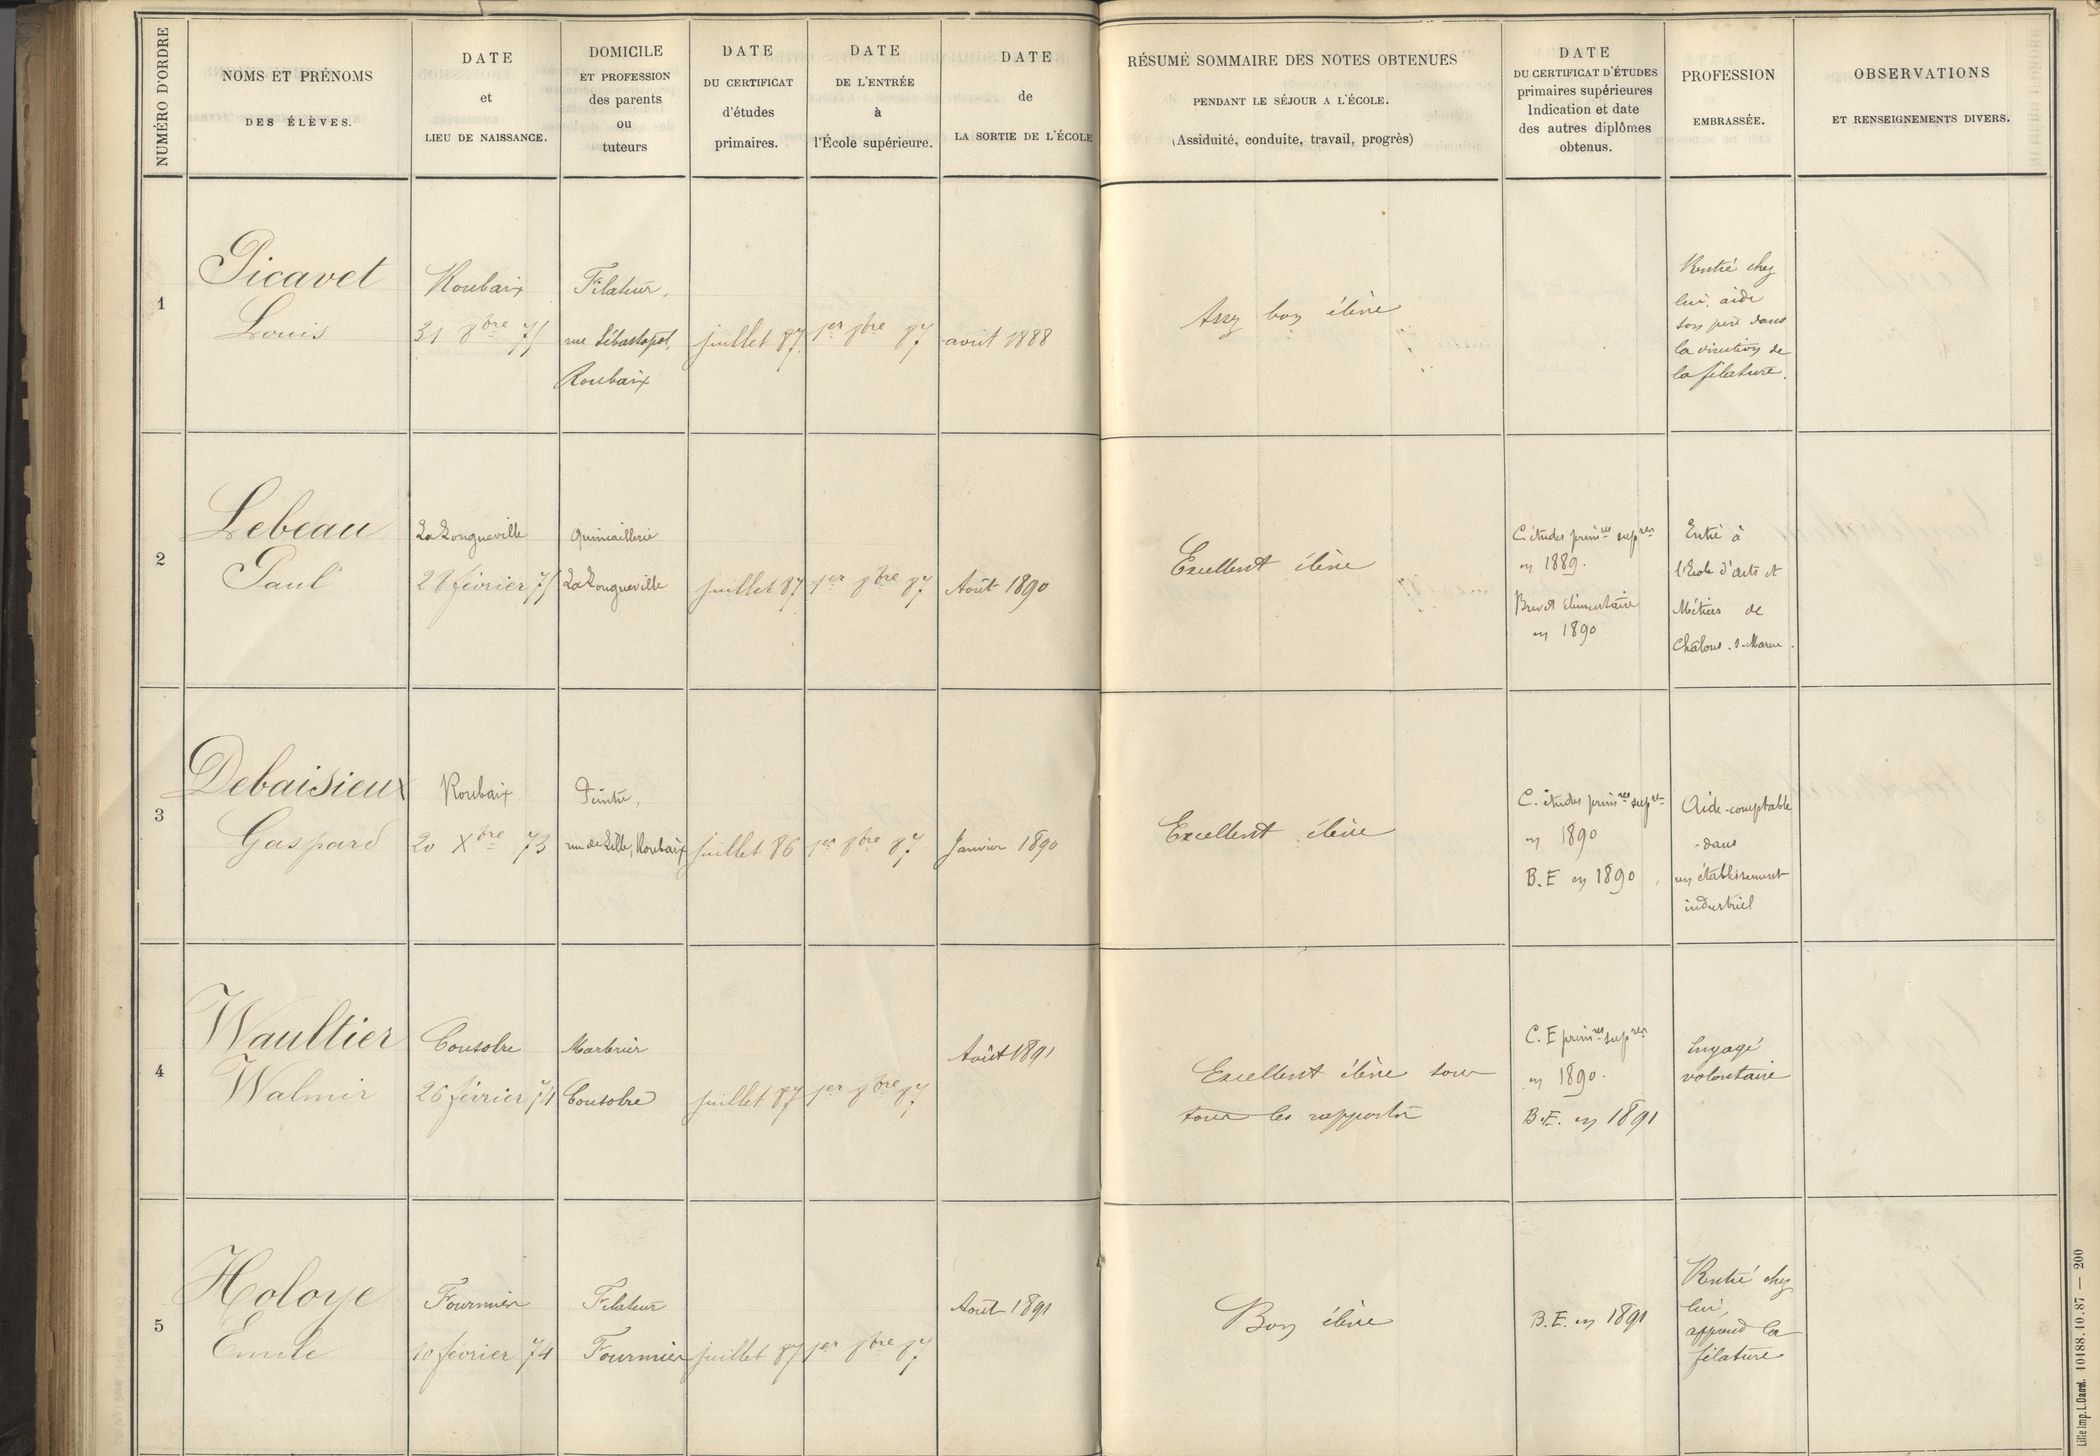 NUMÉRO D'ORDRE
NOMS ET PRÉNOMS
DES ÉLÈVES.
DATE
et
LIEU DE NAISSANCE.
DOMICILE
ET PROFESSION
des parents
ou
tuteurs
DATE
DU CERTIFICAT
d'études
primaires.
DATE
DE L'ENTRÉE
à
l'École supérieure.
DATE
de
LA SORTIE DE L'ÉCOLE
RÉSUMÉ SOMMAIRE DES NOTES OBTENUES
PENDANT LE SÉJOUR A L'ÉCOLE.
(Assiduité, conduite, travail, progrès)
DATE
DU CERTIFICAT D'ÉTUDES
primaires supérieures
Indication et date
des autres diplômes
obtenus.
PROFESSION
EMBRASSÉE.
OBSERVATIONS
ET RENSEIGNEMENTS DIVERS.
1
Picavet
Louis
Roubaix
31 8bre 75
Filateur,
rue Sébastopol,
Roubaix
juillet 87
1er 8bre 87
août 1888
Assez bon élève
Rentré chez
lui, aide
son père dans
la direction de
la filature.
2
Lebeau
Paul
La Longueville
28 février 75
Quincaillerie
La Longueville
juillet 87
1er 8bre 87
Août 1890
Excellent élève
C. études primres supres
en 1889.
Brevet élémentaire
en 1890
Entré à
l'École d'arts et
Métiers de
Châlons-s-Marne.
3
Debaisieux
Gaspard
Roubaix
20 Xbre 73
Peintre,
rue de Lille, Roubaix
juillet 86
1er 8bre 87
Janvier 1890
Excellent élève
C. études primres supres
en 1890
B.E en 1890
Aide-comptable
dans
un établissement
industriel
4
Waultier
Walmir
Cousolre
26 février 74
Marbrier
Cousolre
juillet 87
1er 8bre 87
Août 1891
Excellent élève sous
tous les rapports
C. E primres supres
en 1890.
B.E. en 1891
Engagé
volontaire
5
Holoye
Emile
Fourmies
10 février 74
Filateur
Fourmies
juillet 87
1er 8bre 87
Août 1891
Bon élève
B.E. en 1891
Rentré chez
lui,
apprend la
filature
Lille Imp. L. Danel. 10188.10.87 — 200